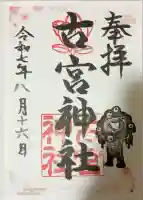 奉拝
古宮神社
令和七年八月十六日